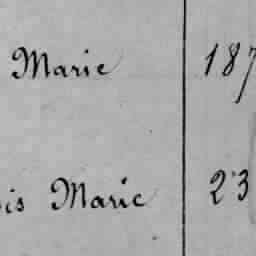 Marie 187
is Marie 23